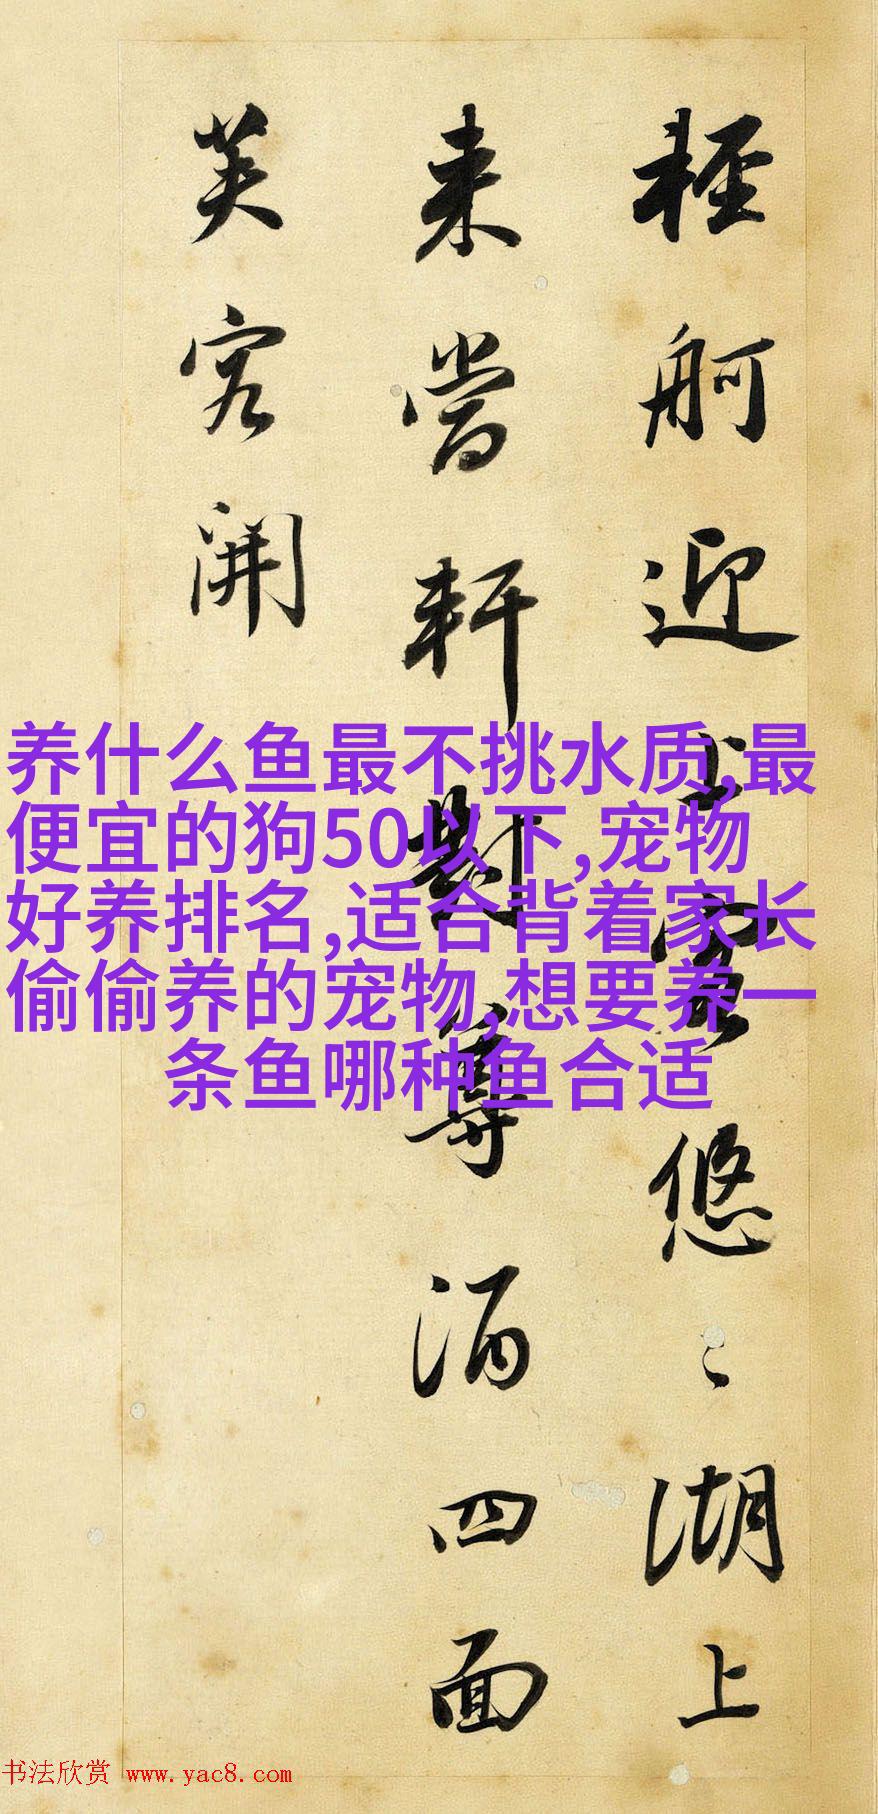 輕舸迎上客悠〻湖上
来當軒對尊酒四面
芙容開
养什么鱼最不挑水质,最
便宜的狗50以下,宠物
好养排名,适合背着家长
偷偷养的宠物,想要养一
条鱼哪种鱼合适
书法欣赏 www.yac8.com